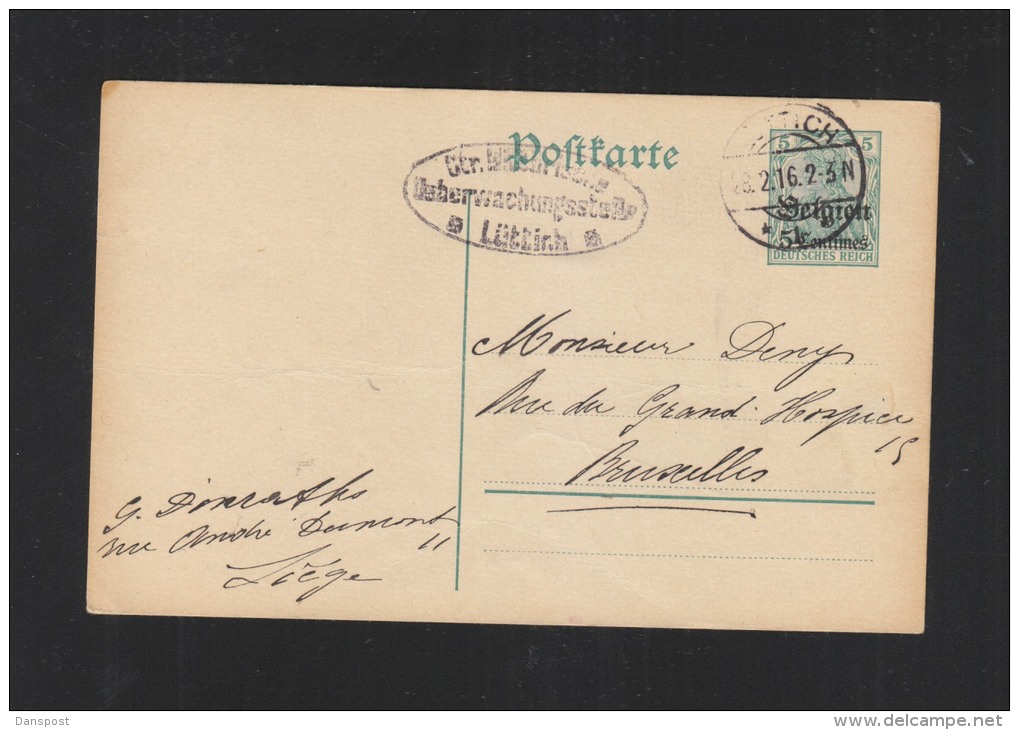 Postkarte
Ueberwachungsstelle
Lüttich
5 5
Belgien
5 Centimes
DEUTSCHES REICH
.2.16.2-3N
Monsieur Deny
Rue du Grand Hospice
15
Bruxelles
G.
rue André Dumont
11
Liège
Danspost
http://www.delcampe.net